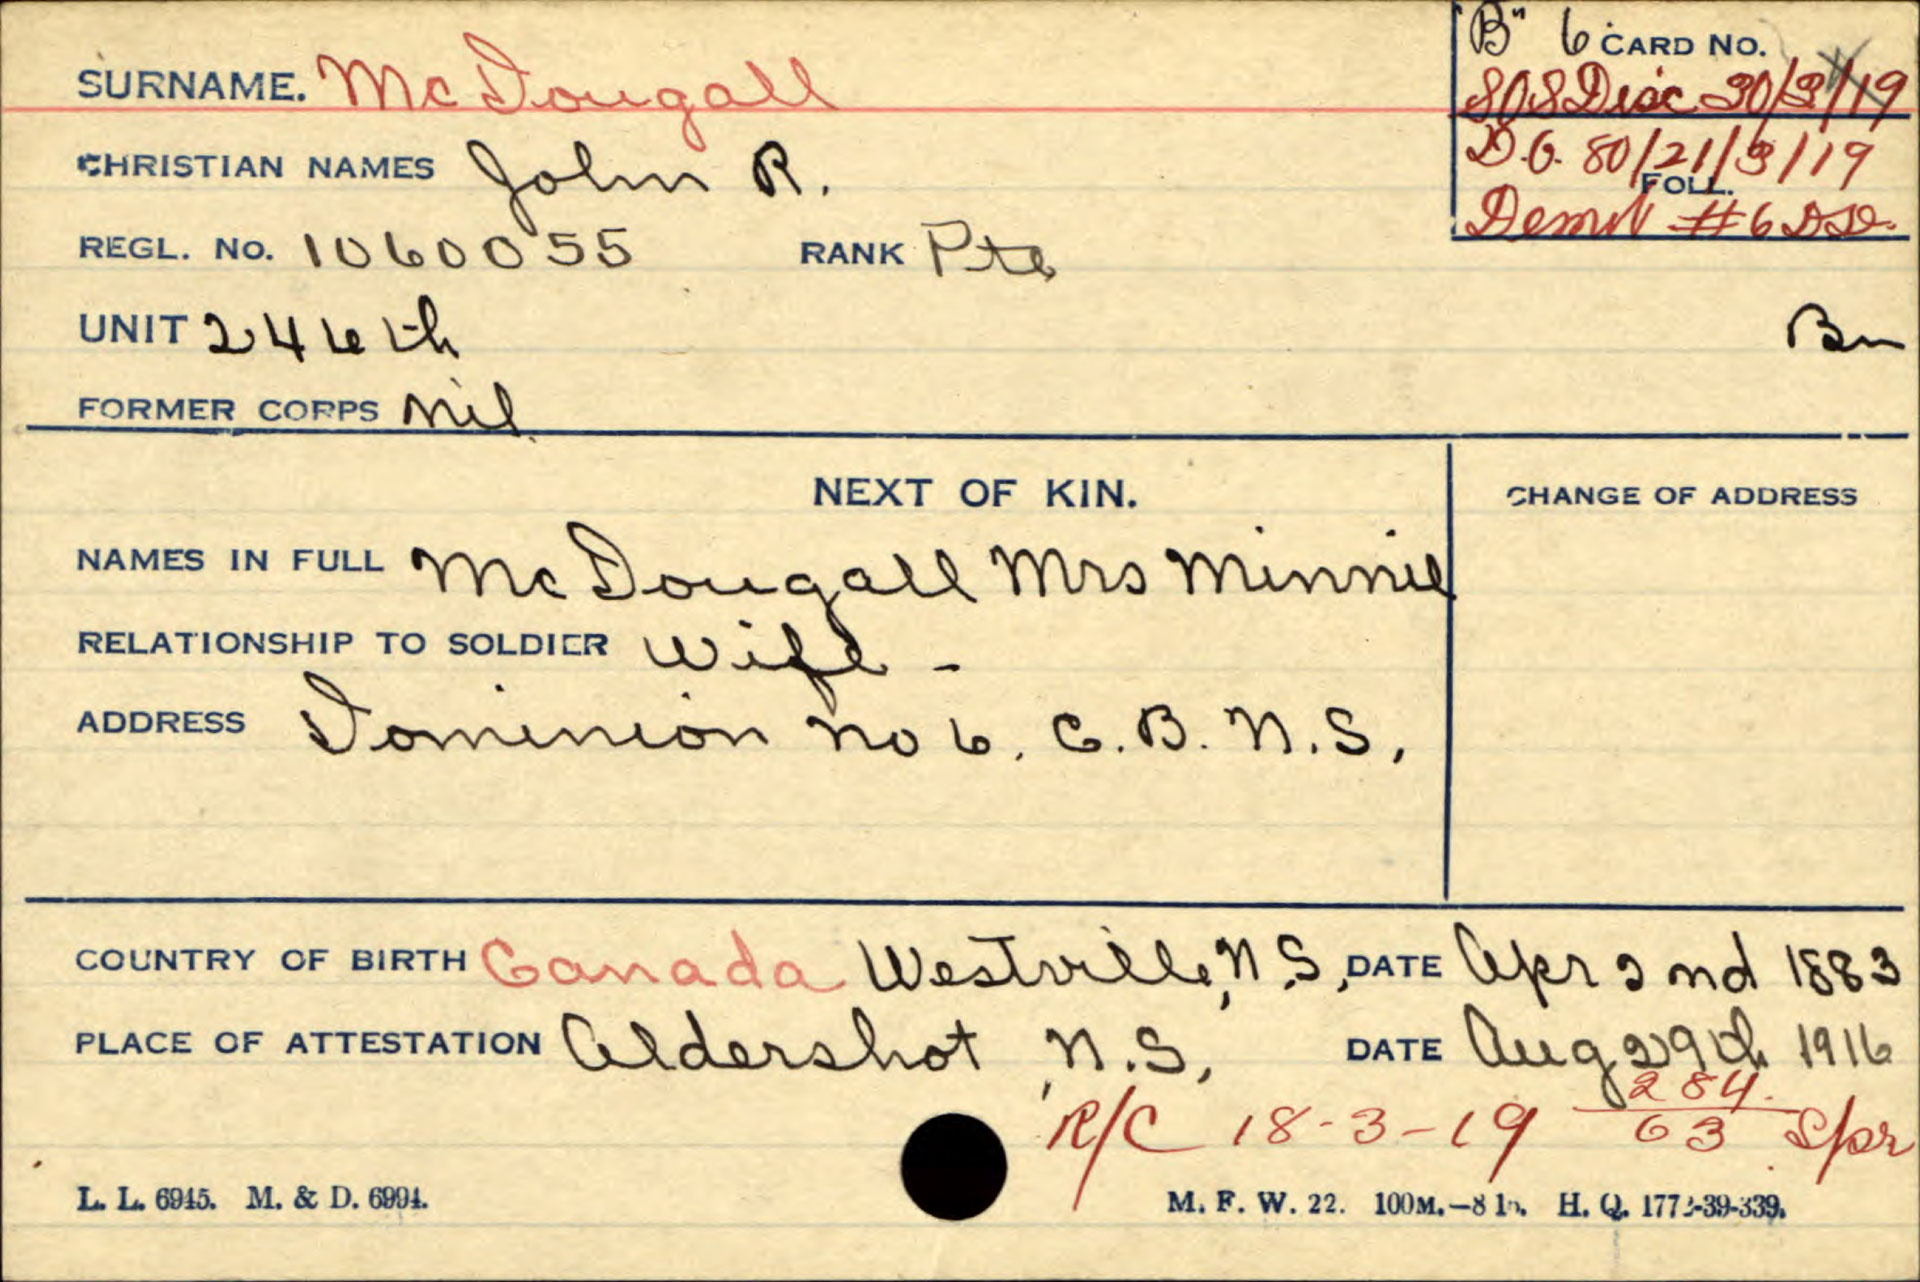 "B" 6 CARD No.
SURNAME. McDougall
SOS Disc 30/3/19
CHRISTIAN NAMES John R.
D.O. 80/21/3/19
FOLL.
REGL. No. 1060055 RANK Pte
Demob #6 DD.
UNIT 246th Bn
FORMER CORPS Nil
NEXT OF KIN.
CHANGE OF ADDRESS
NAMES IN FULL McDougall Mrs Minnie
RELATIONSHIP TO SOLDIER Wife -
ADDRESS Dominion No 6. C.B. N.S,
COUNTRY OF BIRTH Canada Westville, N.S, DATE Apr 2nd 1883
PLACE OF ATTESTATION Aldershot, N.S, DATE Aug 29th 1916
R/C 18-3-19 284./63 Spr
L. L. 6945. M. & D. 6994.
M. F. W. 22. 100M.–8 15. H. Q. 1772-39-339.